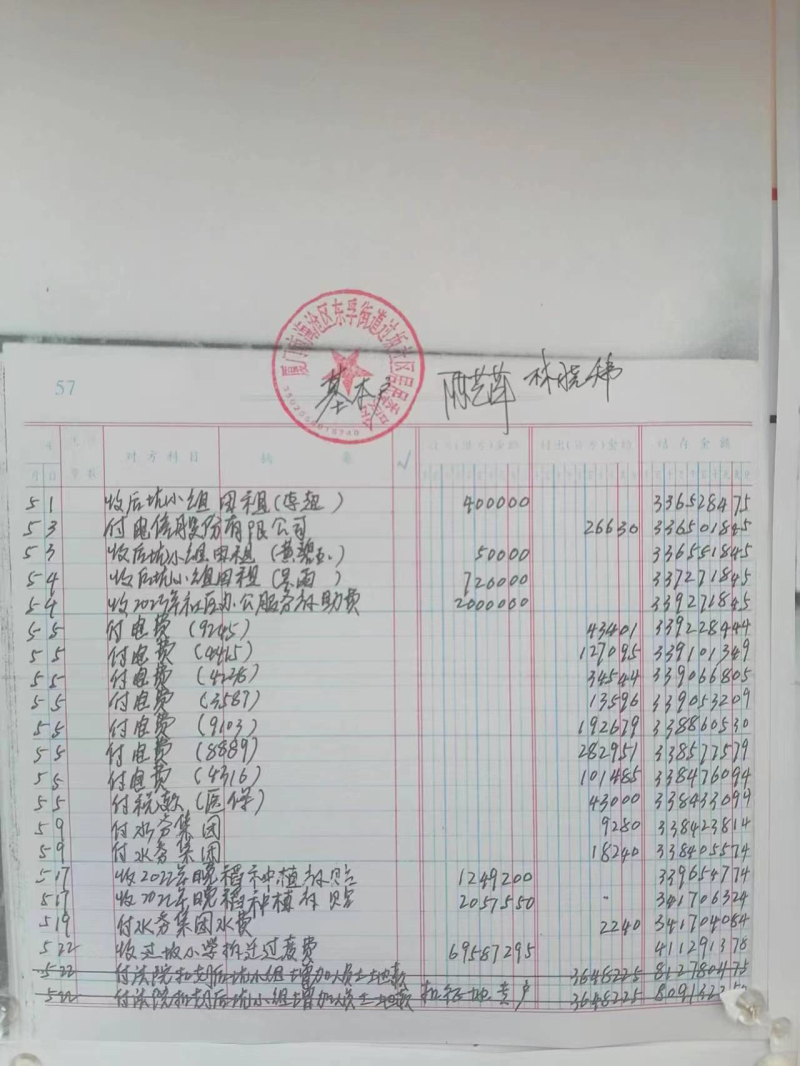 厦门市海沧区东孚街道过坂社区居民委员会
57
基本户
林晓伟
对方科目 摘要 √ 收入(借方)金额 付出(贷方)金额 结存金额
月 日
5 1 收后坑小组田租( ) 400000 336528475
5 3 付电信股份有限公司 26630 336501845
5 3 收后坑小组田租(黄碧 ) 50000 336551845
5 4 收后坑小组田租( ) 720000 337271845
5 4 收2023年社区办公服务补助费 2000000 339271845
5 5 付电费(9245) 43401 339228444
5 5 付电费(4415) 127095 339101349
5 5 付电费(4228) 34544 339066805
5 5 付电费(3587) 13596 339053209
5 5 付电费(9103) 192679 338860530
5 5 付电费(8889) 282951 338577579
5 5 付电费(4316) 101485 338476094
5 5 付税款(医保) 43000 338433094
5 9 付水务集团 9280 338423814
5 9 付水务集团 18240 338405574
5 17 收2022年晚稻种植补贴 1249200 339654774
5 17 收2022年晚稻种植补贴 2057550 341706324
5 19 付水务集团水费 2240 341704084
5 22 收过坂小学拆迁过渡费 69587295 411291378
5 22 付法院扣划后坑小组增加人员土地款 3648225
5 22 付法院扣划后坑小组增加人员土地款 3648225